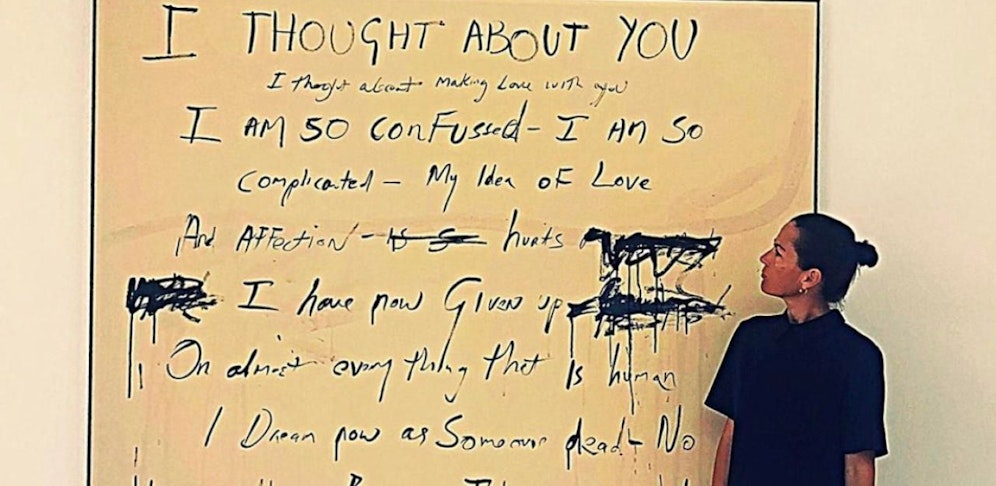 I THOUGHT ABOUT YOU
I thought about making Love with you
I AM SO CONFUSSed - I AM SO
complicated - My Idea OF Love
And AFFection - is so hurts
I have now Given up
On almost every thing that is human
I Dream now as Someone dead - No